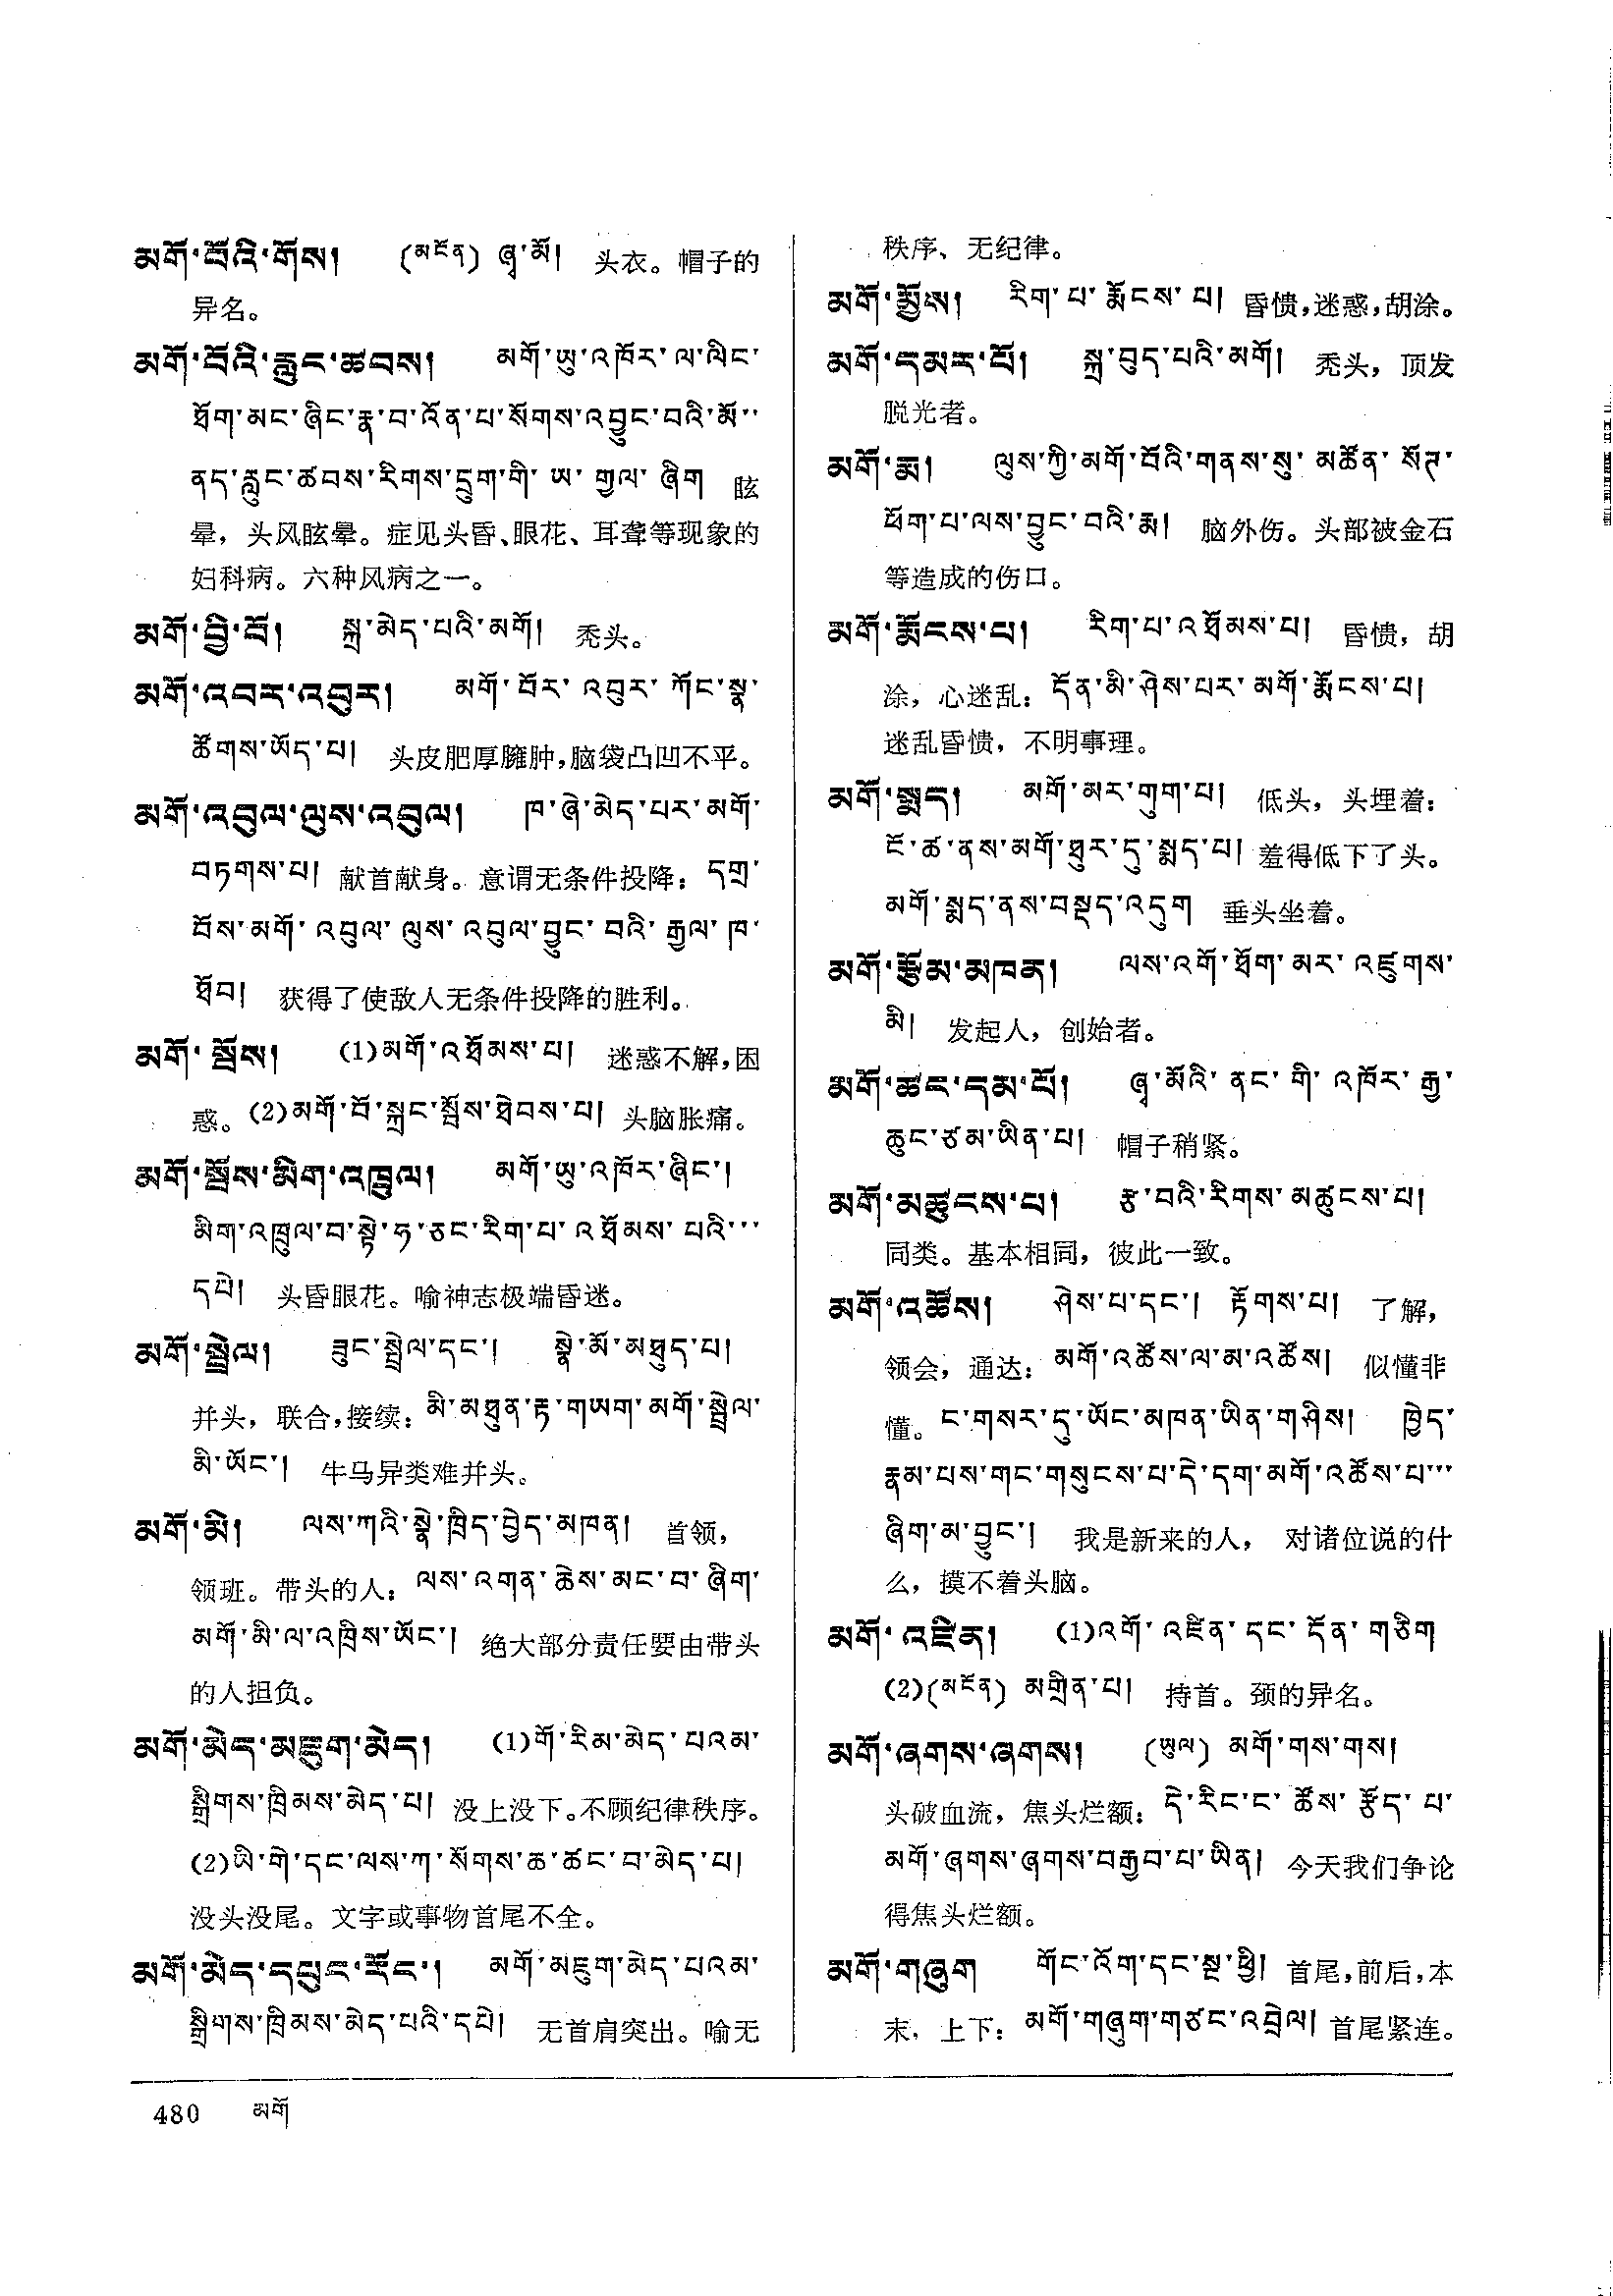 མགོ་བོའི་གོས། (མངོན) ཞྭ་མོ། 头衣。帽子的
异名。
མགོ་བོའི་རླུང་ཚབས། མགོ་ཡུ་འཁོར་ལ་ལིང་
ཐོག་མང་ཞིང་རྣ་བ་འོན་པ་སོགས་འབྱུང་བའི་མོ་་
ནད་རླུང་ཚབས་རིགས་དྲུག་གི་ཡ་གྱལ་ཞིག 眩
晕，头风眩晕。症见头昏、眼花、耳聋等现象的
妇科病。六种风病之一。
མགོ་བྱི་བོ། སྐྲ་མེད་པའི་མགོ། 秃头。
མགོ་འབར་འབུར། མགོ་བོར་འབུར་ཀོང་སྣ་
ཚོགས་ཡོད་པ། 头皮肥厚臃肿，脑袋凸凹不平。
མགོ་འབུལ་ལུས་འབུལ། ཁ་ཞེ་མེད་པར་མགོ་
བཏགས་པ། 献首献身。意谓无条件投降：དགྲ་
བོས་མགོ་འབུལ་ལུས་འབུལ་བྱུང་བའི་རྒྱལ་ཁ་
ཐོབ། 获得了使敌人无条件投降的胜利。
མགོ་སྦོས། (1)མགོ་འཐོམས་པ། 迷惑不解，困
惑。(2)མགོ་བོ་སྐྲང་སྦོས་ཐེབས་པ། 头脑胀痛。
མགོ་སྦོས་མིག་འཁྲུལ། མགོ་ཡུ་འཁོར་ཞིང་།
མིག་འཁྲུལ་བ་སྟེ་ཧ་ཅང་རིག་པ་འཐོམས་པའི་་་
དཔེ། 头昏眼花。喻神志极端昏迷。
མགོ་སྦྲེལ། ཟུང་སྦྲེལ་དང་། སྣེ་མོ་མཐུད་པ།
并头，联合，接续：མི་མཐུན་རྟ་གཡག་མགོ་སྦྲེལ་
མི་ཡོང་། 牛马异类难并头。
མགོ་མི། ལས་ཀའི་སྣེ་ཁྲིད་བྱེད་མཁན། 首领，
领班。带头的人：ལས་འགན་ཆེས་མང་བ་ཞིག་
མགོ་མི་ལ་འཁྲིས་ཡོང་། 绝大部分责任要由带头
的人担负。
མགོ་མེད་མཇུག་མེད། (1)གོ་རིམ་མེད་པའམ་
སྒྲིགས་ཁྲིམས་མེད་པ། 没上没下。不顾纪律秩序。
(2)ཡི་གེ་དང་ལས་ཀ་སོགས་ཆ་ཚང་བ་མེད་པ།
没头没尾。文字或事物首尾不全。
མགོ་མེད་དཔུང་རྡོང་། མགོ་མཇུག་མེད་པའམ་
སྒྲིགས་ཁྲིམས་མེད་པའི་དཔེ། 无首肩突出。喻无
秩序、无纪律。
མགོ་མྱོས། རིག་པ་རྨོངས་པ། 昏愦，迷惑，胡涂。
མགོ་དམར་པོ། སྐྲ་བུད་པའི་མགོ། 秃头，顶发
脱光者。
མགོ་རྨ། ལུས་ཀྱི་མགོ་བོའི་གནས་སུ་མཚོན་སོཊ་
ཕོག་པ་ལས་བྱུང་བའི་རྨ། 脑外伤。头部被金石
等造成的伤口。
མགོ་རྨོངས་པ། རིག་པ་འཐོམས་པ། 昏愦，胡
涂，心迷乱：དོན་མི་ཤེས་པར་མགོ་རྨོངས་པ།
迷乱昏愦，不明事理。
མགོ་སྨད། མགོ་མར་གུག་པ། 低头，头埋着：
ངོ་ཚ་ནས་མགོ་ཐུར་དུ་སྨད་པ། 羞得低下了头。
མགོ་སྨད་ནས་བསྡད་འདུག 垂头坐着。
མགོ་རྩོམ་མཁན། ལས་འགོ་ཐོག་མར་འཛུགས་
མི། 发起人，创始者。
མགོ་ཚང་དམ་པོ། ཞྭ་མོའི་ནང་གི་འཁོར་རྒྱ་
ཆུང་ཙམ་ཡིན་པ། 帽子稍紧。
མགོ་མཚུངས་པ། རྩ་བའི་རིགས་མཚུངས་པ།
同类。基本相同，彼此一致。
མགོ་འཚོས། ཤེས་པ་དང་། རྟོགས་པ། 了解，
领会，通达：མགོ་འཚོས་ལ་མ་འཚོས། 似懂非
懂。ང་གསར་དུ་ཡོང་མཁན་ཡིན་གཤིས། ཁྱེད་
རྣམ་པས་གང་གསུངས་པ་དེ་དག་མགོ་འཚོས་པ་་་
ཞིག་མ་བྱུང་། 我是新来的人， 对诸位说的什
么，摸不着头脑。
མགོ་འཛིན། (1)འགོ་འཛིན་དང་དོན་གཅིག
(2)(མངོན) མགྲིན་པ། 持首。颈的异名。
མགོ་ཞགས་ཞགས། (ཡུལ) མགོ་གས་གས།
头破血流，焦头烂额：དེ་རིང་ང་ཚོས་རྩོད་པ་
མགོ་ཞགས་ཞགས་བརྒྱབ་པ་ཡིན། 今天我们争论
得焦头烂额。
མགོ་གཞུག གོང་འོག་དང་སྔ་ཕྱི། 首尾，前后，本
末，上下：མགོ་གཞུག་གཙང་འབྲེལ། 首尾紧连。
480 མགོ